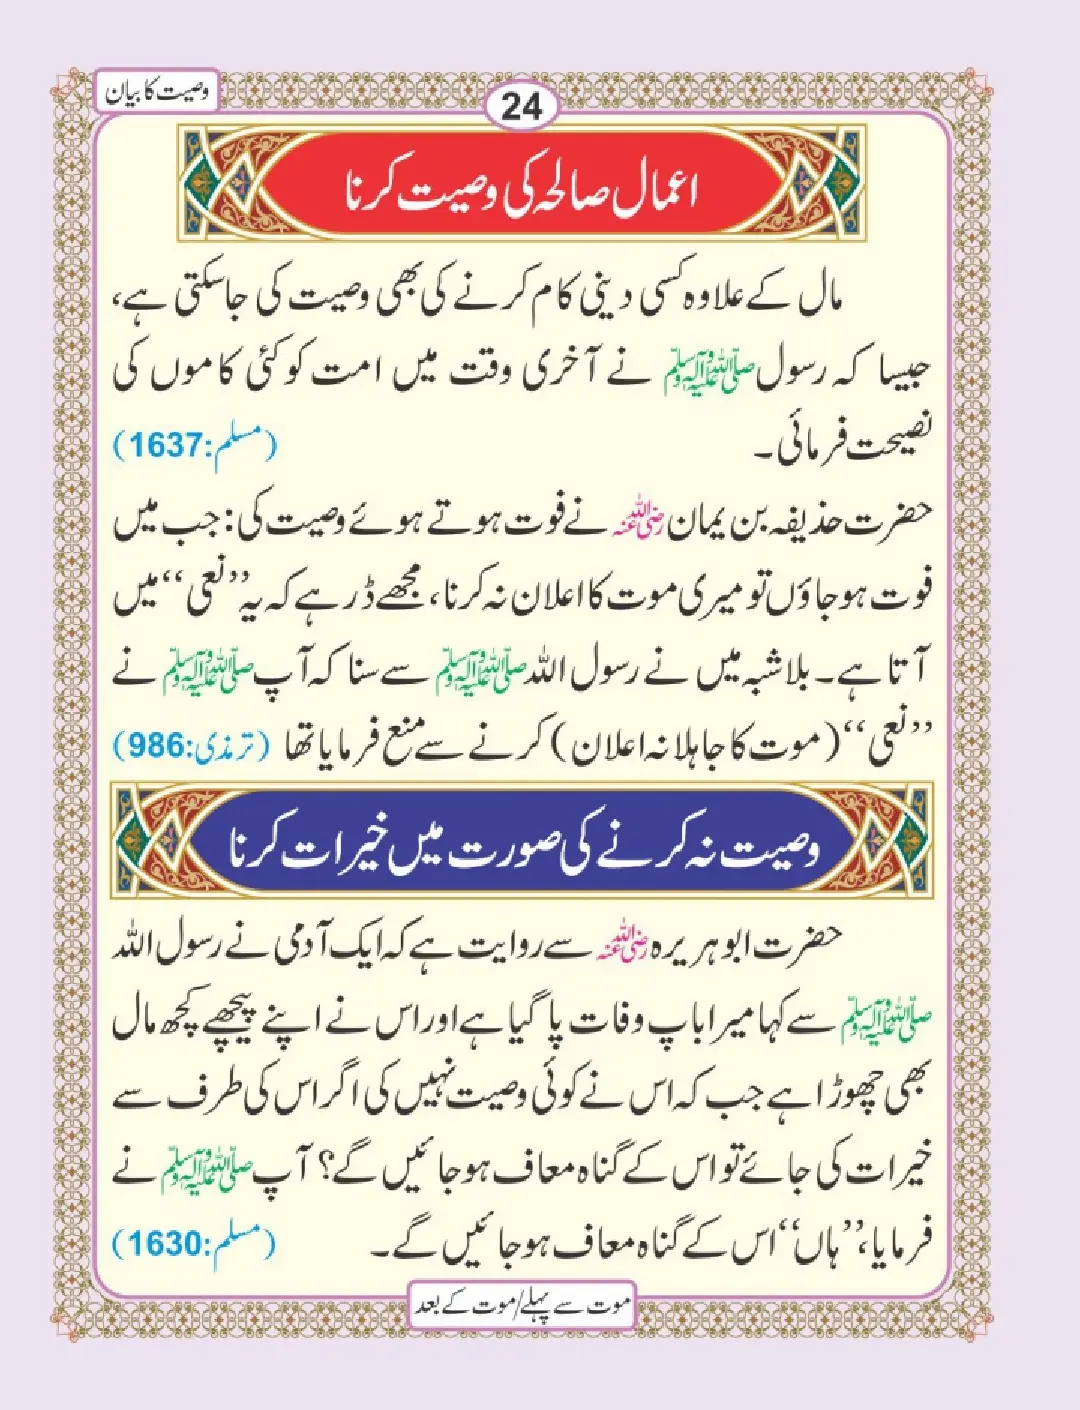 وصیت کا بیان
24
اعمال صالحہ کی وصیت کرنا
مال کے علاوہ کسی دینی کام کرنے کی بھی وصیت کی جاسکتی ہے،
جیسا کہ رسول ﷺ نے آخری وقت میں امت کو کئی کاموں کی
نصیحت فرمائی۔ (مسلم:1637)
حضرت حذیفہ بن یمان رضی اللہ عنہ نے فوت ہوتے ہوئے وصیت کی: جب میں
فوت ہو جاؤں تو میری موت کا اعلان نہ کرنا، مجھے ڈر ہے کہ یہ ’’نعی‘‘ میں
آتا ہے۔ بلاشبہ میں نے رسول اللہ ﷺ سے سنا کہ آپ ﷺ نے
’’نعی‘‘ (موت کا جاہلانہ اعلان) کرنے سے منع فرمایا تھا (ترمذی:986)
وصیت نہ کرنے کی صورت میں خیرات کرنا
حضرت ابو ہریرہ رضی اللہ عنہ سے روایت ہے کہ ایک آدمی نے رسول اللہ
ﷺ سے کہا میرا باپ وفات پا گیا ہے اور اس نے اپنے پیچھے کچھ مال
بھی چھوڑا ہے جب کہ اس نے کوئی وصیت نہیں کی اگر اس کی طرف سے
خیرات کی جائے تو اس کے گناہ معاف ہو جائیں گے؟ آپ ﷺ نے
فرمایا، ’’ہاں‘‘ اس کے گناہ معاف ہو جائیں گے۔ (مسلم:1630)
موت سے پہلے/موت کے بعد